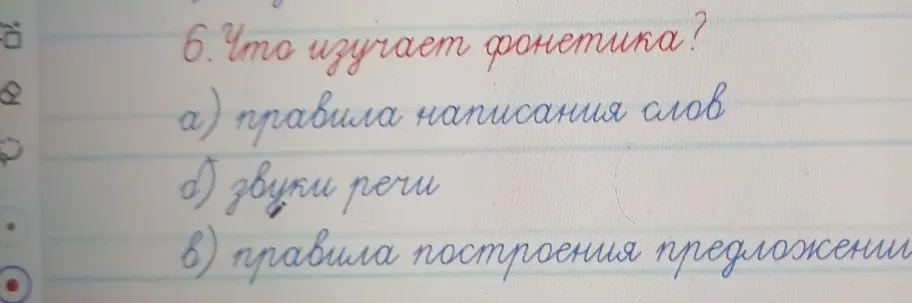 6. Что изучает фонетика?
а) правила написания слов
б) звуки речи
в) правила построения предложении